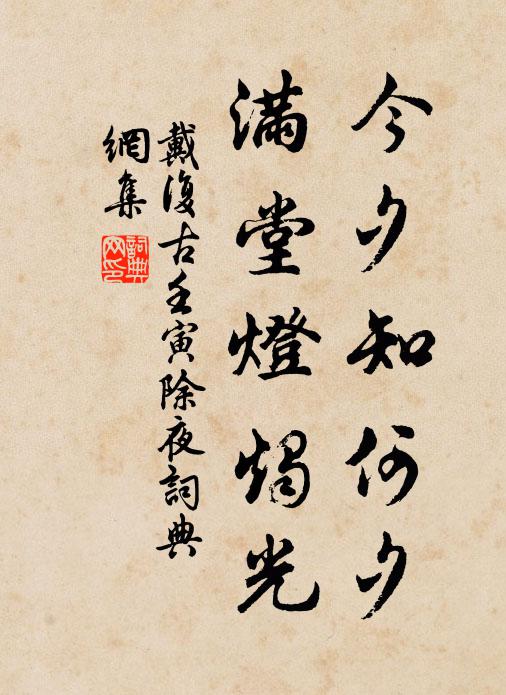 今夕知何夕
滿堂燈燭光
戴復古壬寅除夜詞典
網集
詞典
网印